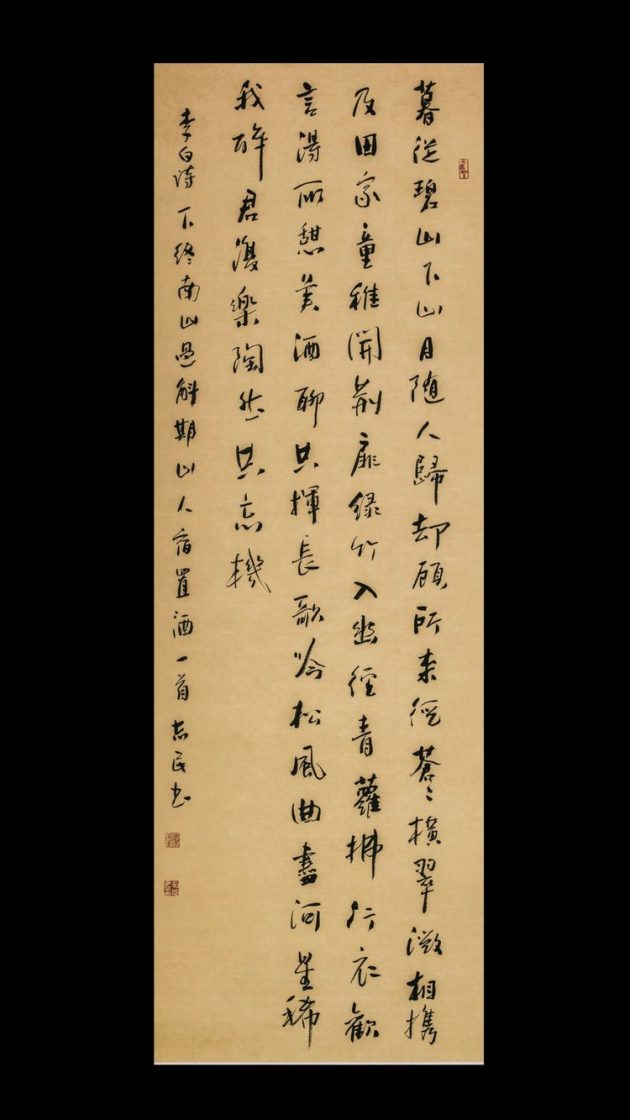 暮從碧山下山月随人歸却顧所来徑蒼〻横翠微相携
及田家童稚開荆扉绿竹入幽徑青蘿拂行衣歡
言得所憩美酒聊共揮長歌吟松風曲盡河星稀
我醉君復樂陶然共忘機
李白诗下终南山過斛期山人宿置酒一首志民书